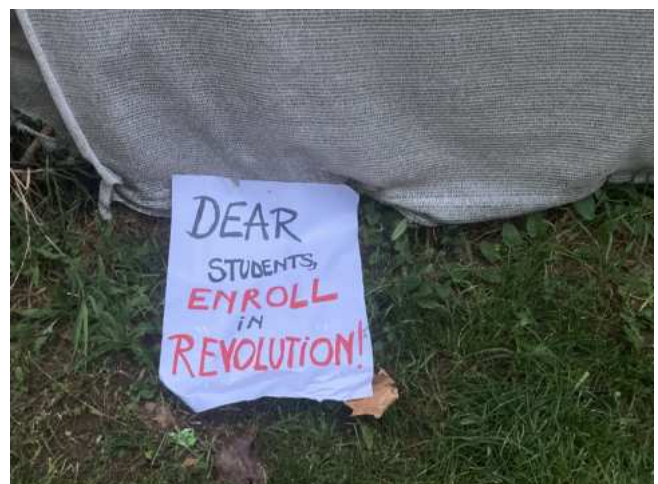 DEAR
STUDENTS,
ENROLL
iN
REVOLUTION!